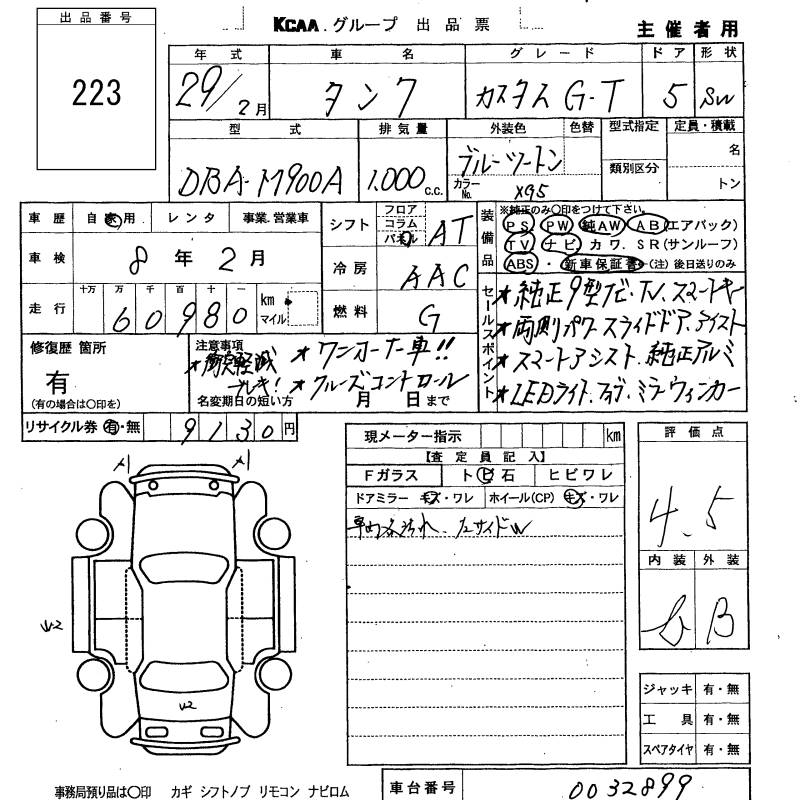 出品番号
223
KCAA グループ 出品票
主催者用
年式 車名 グレード ドア 形状
29/2月 タンク カスタム G-T 5 SW
型式 排気量 外装色 色替 型式指定 定員・積載
DBA-M900A 1,000 c.c. ブルーツートン 名
カラーNo. X95 類別区分 トン
車歴 自家用 レンタ 事業.営業車
車検 8年2月
走行 十万 万 千 百 十 一
60980 km マイル
シフト フロア コラム パネル AT
冷房 AAC
燃料 G
装備品 ※純正のみ〇印をつけて下さい。
PS PW 純AW AB(エアバック)
TV ナビ カワ. SR(サンルーフ)
ABS ・ 新車保証書 ←(注) 後日送りのみ
セールスポイント
★純正9型ナビ.TV.スマートキー
★両側パワースライドドア.アイスト
★スマートアシスト.純正アルミ
★LEDライト.フォグ.ミラーウィンカー
修復歴 箇所
有
(有の場合は〇印を)
注意事項
★衝突軽減ブレーキ!
★ワンオーナー車!!
★クルーズコントロール
名変期日の短い方 月 日まで
リサイクル券 有・無 9130円
現メーター指示 km
【査定員記入】
Fガラス トビ石 ヒビワレ
ドアミラー キズ・ワレ ホイール(CP) キズ・ワレ
車内各汚れ. 左サイドW
評価点
4.5
内装 外装
b B
ジャッキ 有・無
工具 有・無
スペアタイヤ 有・無
W2
U2
事務局預り品は〇印 カギ シフトノブ リモコン ナビロム
車台番号 0032899